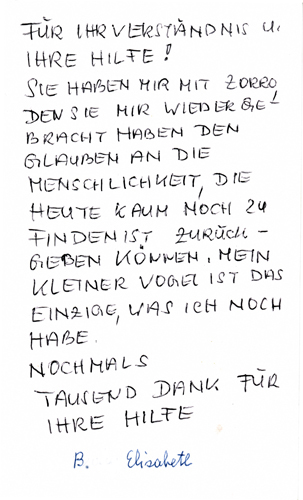 FÜR IHR VERSTÄNDNIS U.
IHRE HILFE!
SIE HABEN MIR MIT ZORRO,
DEN SIE MIR WIEDER GE-
BRACHT HABEN DEN
GLAUBEN AN DIE
MENSCHLICHKEIT, DIE
HEUTE KAUM NOCH ZU
FINDEN IST ZURÜCK-
GEBEN KÖNNEN. MEIN
KLEINER VOGEL IST DAS
EINZIGE, WAS ICH NOCH
HABE.
NOCHMALS
TAUSEND DANK FÜR
IHRE HILFE
B. Elisabeth